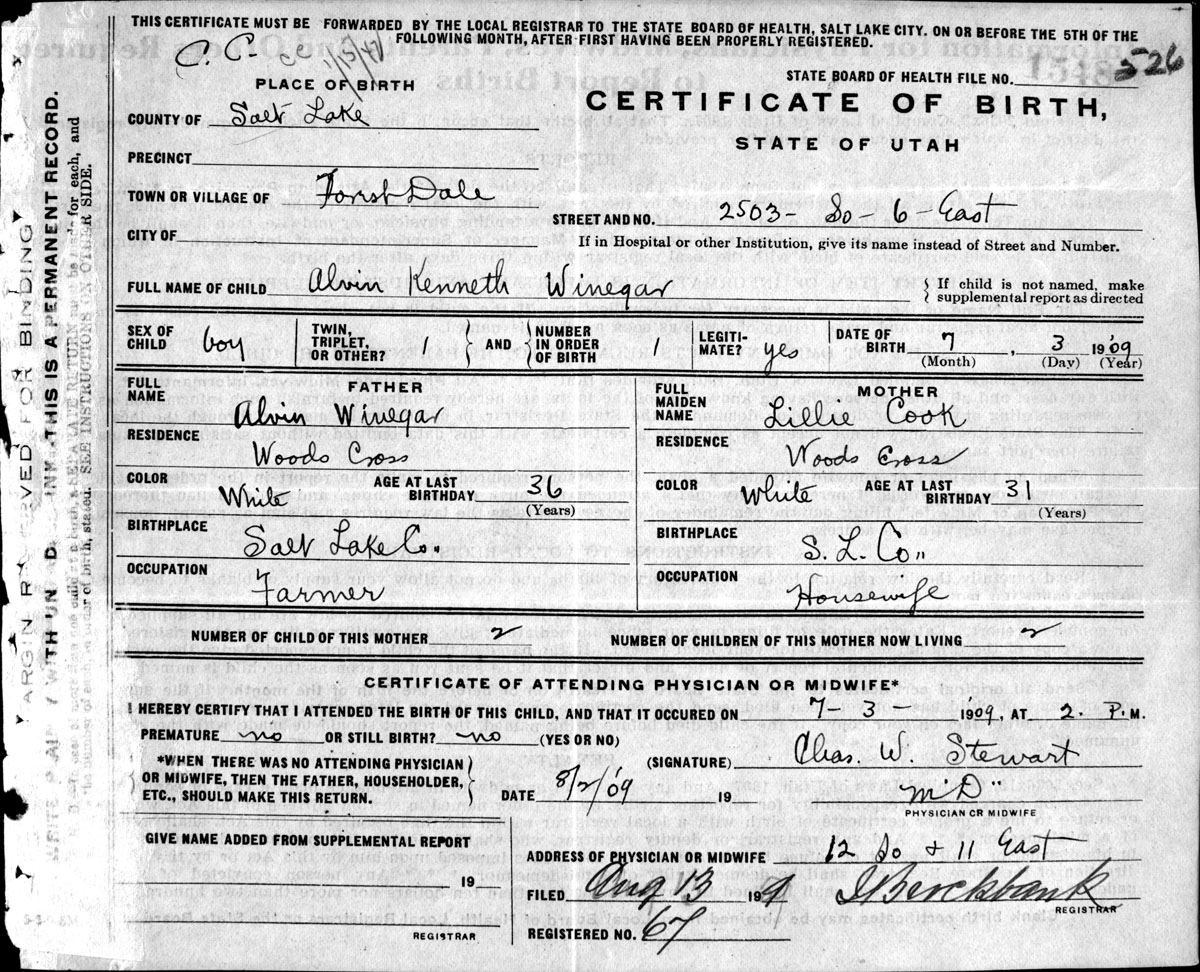 THIS CERTIFICATE MUST BE FORWARDED BY THE LOCAL REGISTRAR TO THE STATE BOARD OF HEALTH, SALT LAKE CITY. ON OR BEFORE THE 5TH OF THE
FOLLOWING MONTH, AFTER FIRST HAVING BEEN PROPERLY REGISTERED.
C. C. cc 1/5/41
STATE BOARD OF HEALTH FILE NO. 526
PLACE OF BIRTH
CERTIFICATE OF BIRTH,
STATE OF UTAH
COUNTY OF Salt Lake
PRECINCT
TOWN OR VILLAGE OF Forist Dale
STREET AND NO. 2503 - So - 6 - East
CITY OF
If in Hospital or other Institution, give its name instead of Street and Number.
FULL NAME OF CHILD Alvin Kenneth Winegar
If child is not named, make
supplemental report as directed
SEX OF CHILD boy
TWIN, TRIPLET, OR OTHER? 1
AND
NUMBER IN ORDER OF BIRTH 1
LEGITI-MATE? yes
DATE OF BIRTH 7 , 3 19'09
(Month) (Day) (Year)
FATHER
FULL NAME Alvin Winegar
RESIDENCE
Woods Cross
COLOR White AGE AT LAST BIRTHDAY 36
(Years)
BIRTHPLACE
Salt Lake Co.
OCCUPATION
Farmer
MOTHER
FULL MAIDEN NAME Lillie Cook
RESIDENCE
Woods Cross
COLOR White AGE AT LAST BIRTHDAY 31
(Years)
BIRTHPLACE
S. L. Co.
OCCUPATION
Housewife
NUMBER OF CHILD OF THIS MOTHER 2 NUMBER OF CHILDREN OF THIS MOTHER NOW LIVING 2
CERTIFICATE OF ATTENDING PHYSICIAN OR MIDWIFE*
I HEREBY CERTIFY THAT I ATTENDED THE BIRTH OF THIS CHILD, AND THAT IT OCCURED ON 7 - 3 - 1909, AT 2. P.M.
PREMATURE no OR STILL BIRTH? no (YES OR NO)
*WHEN THERE WAS NO ATTENDING PHYSICIAN
OR MIDWIFE, THEN THE FATHER, HOUSEHOLDER,
ETC., SHOULD MAKE THIS RETURN.
(SIGNATURE) Chas. W. Stewart
DATE 8/2/09 19 M D
PHYSICIAN OR MIDWIFE
GIVE NAME ADDED FROM SUPPLEMENTAL REPORT
19
REGISTRAR
ADDRESS OF PHYSICIAN OR MIDWIFE 12 So + 11 East
FILED Aug 13 199
REGISTRAR
REGISTERED NO. 67
MARGIN RESERVED FOR BINDING
THIS IS A PERMANENT RECORD.
SEE INSTRUCTIONS ON OTHER SIDE.